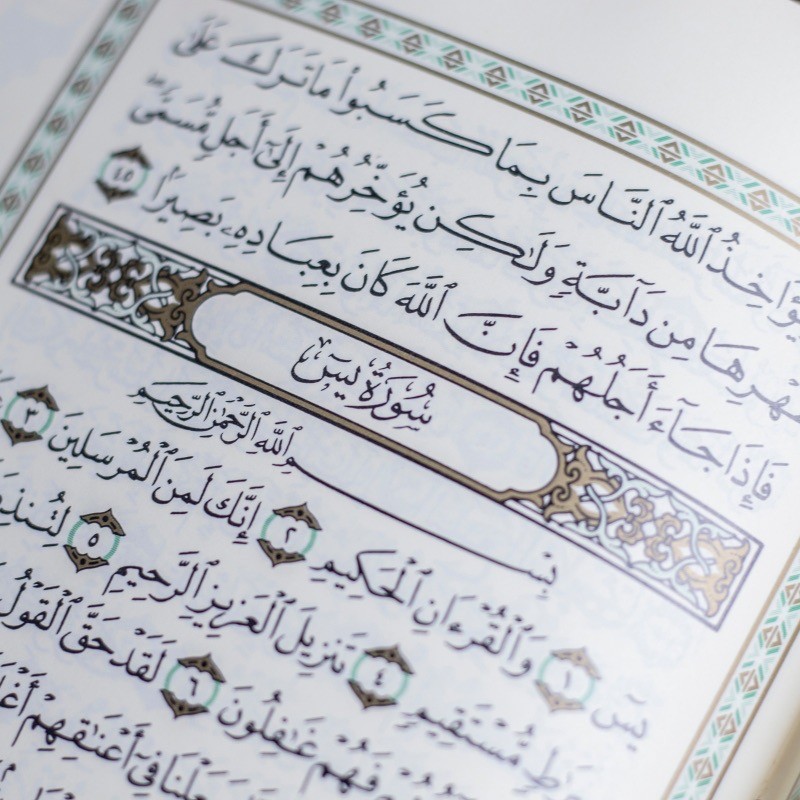 يُؤَاخِذُ ٱللَّهُ ٱلنَّاسَ بِمَا كَسَبُوا۟ مَا تَرَكَ عَلَىٰ
مِن دَآبَّةٍ وَلَٰكِن يُؤَخِّرُهُمْ إِلَىٰٓ أَجَلٍ مُّسَمًّى
فَإِذَا جَآءَ أَجَلُهُمْ فَإِنَّ ٱللَّهَ كَانَ بِعِبَادِهِۦ بَصِيرًۢا ٤٥
سُورَةُ يسٓ
بِسْمِ ٱللَّهِ ٱلرَّحْمَٰنِ ٱلرَّحِيمِ
يسٓ ١ وَٱلْقُرْءَانِ ٱلْحَكِيمِ ٢ إِنَّكَ لَمِنَ ٱلْمُرْسَلِينَ ٣
مُّسْتَقِيمٍ ٤ تَنزِيلَ ٱلْعَزِيزِ ٱلرَّحِيمِ ٥
فَهُمْ غَٰفِلُونَ ٦ لَقَدْ حَقَّ ٱلْقَوْلُ
فِىٓ أَعْنَٰقِهِمْ